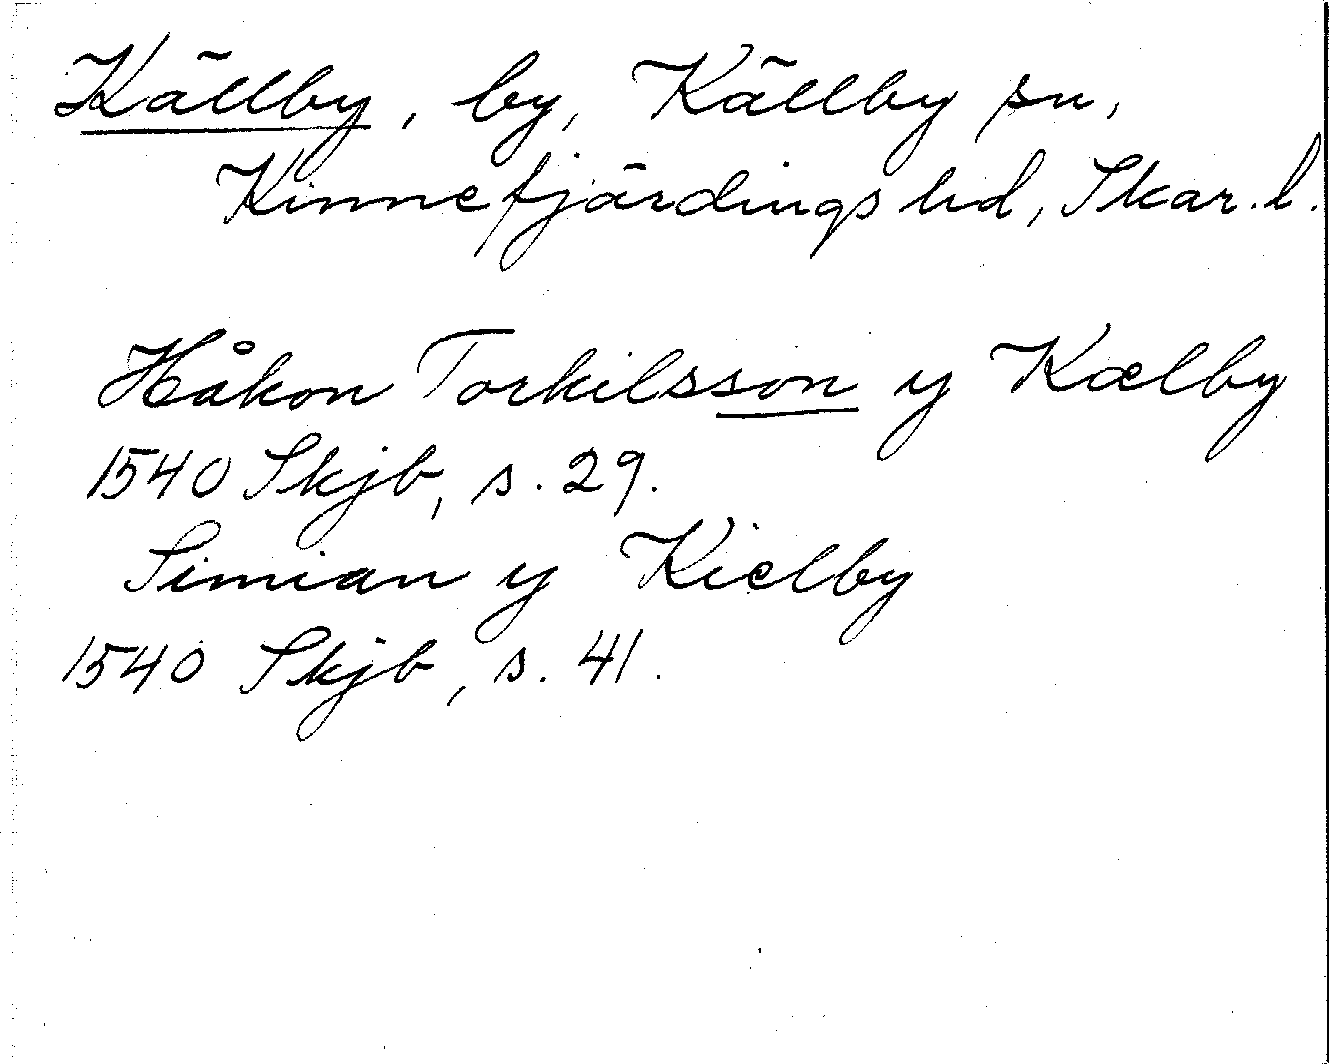 Källby, by, Källby sn,
Kinnefjärdings hd, Skar. l.
Håkon Torkilsson y Kælby
1540 Skjb, s. 29.
Simian y Kielby
1540 Skjb, s. 41.